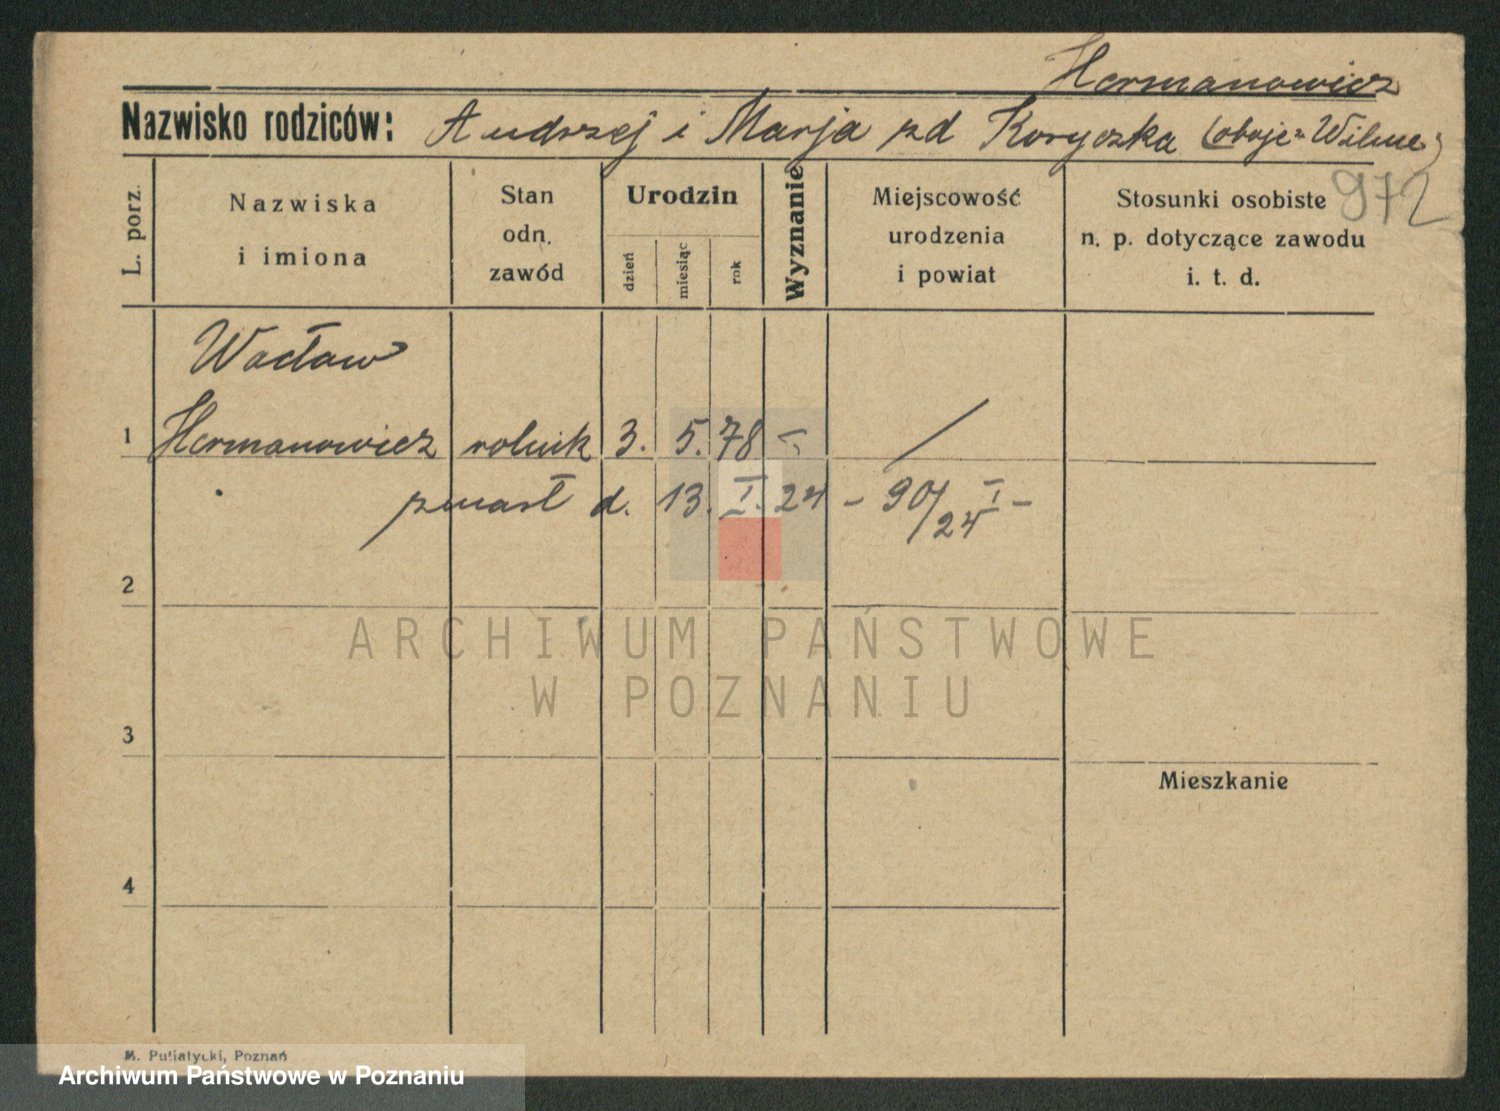 Hermanowicz
Nazwisko rodziców: Andrzej i Marja zd Koryczka (oboje z Wilna)
972
L. porz.
Nazwiska
i imiona
Stan
odn.
zawód
Urodzin
dzień
miesiąc
rok
Wyznanie
Miejscowość
urodzenia
i powiat
Stosunki osobiste
n. p. dotyczące zawodu
i. t. d.
Wacław
1 Hermanowicz rolnik 3. 5. 78 - /
zmarł d. 13. I. 24 - 90/24 I -
2
ARCHIWUM PAŃSTWOWE
W POZNANIU
3
Mieszkanie
4
M. Putiatycki, Poznań
Archiwum Państwowe w Poznaniu